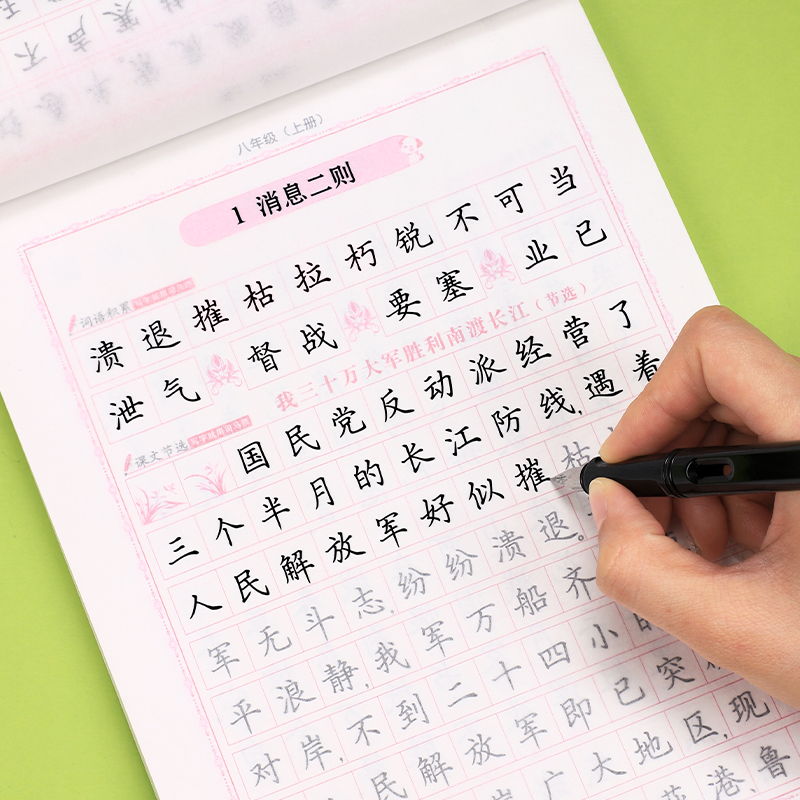 八年级（上册）
1 消息二则
词语积累
溃退摧枯拉朽锐不可当
泄气 督战 要塞 业已
我三十万大军胜利南渡长江（节选）
课文节选
国民党反动派经营了
三个半月的长江防线,遇着
人民解放军好似摧枯
军无斗志,纷纷溃退。
平浪静,我军万船齐
对岸,不到二十四小
民解放军即已突
广大地区,现
港,鲁